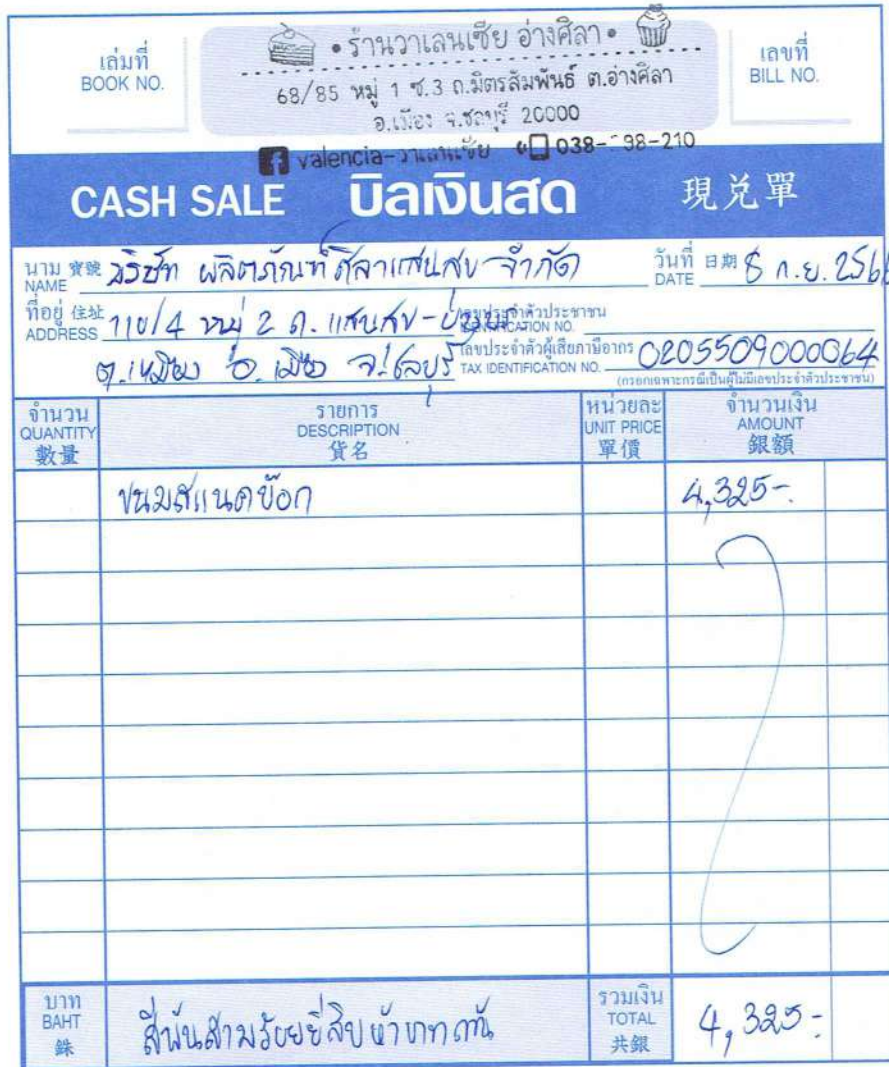 เล่มที่
BOOK NO.
• ร้านวาเลนเซีย อ่างศิลา •
68/85 หมู่ 1 ซ.3 ถ.มิตรสัมพันธ์ ต.อ่างศิลา
อ.เมือง จ.ชลบุรี 20000
valencia-วาเลนเซีย 038- 98-210
เลขที่
BILL NO.
CASH SALE บิลเงินสด 現兌單
นาม 寶號 NAME บริษัท ผลิตภัณฑ์ศิลาแสนสุข จำกัด
วันที่ 日期 DATE 8 ก.ย. 256
ที่อยู่ 住址 ADDRESS 110/4 หมู่ 2 ถ. แสนสุข-
เลขประจำตัวประชาชน
IDENTIFICATION NO.
ต.เหมือง อ.เมือง จ.ชลบุรี
เลขประจำตัวผู้เสียภาษีอากร
TAX IDENTIFICATION NO. 0205509000064
(กรอกเฉพาะกรณีเป็นผู้ไม่มีเลขประจำตัวประชาชน)
จำนวน QUANTITY 數量
รายการ DESCRIPTION 貨名
หน่วยละ UNIT PRICE 單價
จำนวนเงิน AMOUNT 銀額
ขนมสแนคบ๊อก 4,325-
บาท BAHT 銖
สี่พันสามร้อยยี่สิบห้าบาทถ้วน
รวมเงิน TOTAL 共銀
4,325-